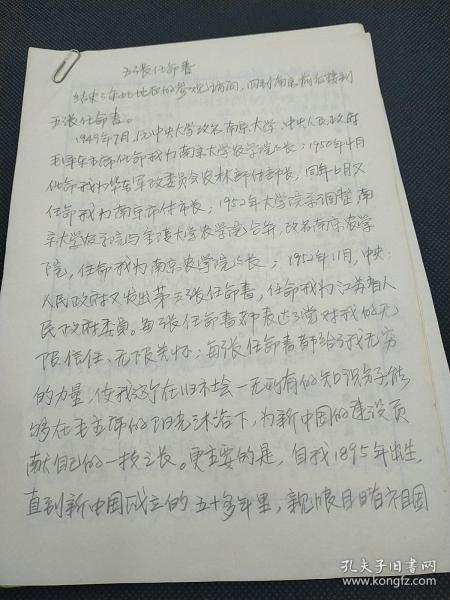 五张任命书
结束了东北地区的参观访问，回到南京前后接到
五张任命书。
1949年7月，伪中央大学改名南京大学，中央人民政府
毛泽东主席任命我为南京大学农学院院长；1950年4月
任命我为华东军政委员会农林部任部长，同年七月又
任命我为南京市付市长；1952年大学院系调整，南
京大学农学院与金陵大学农学院合并，改名南京农学
院，任命我为南京农学院院长；1952年11月，中央
人民政府又发出第三张任命书，任命我为江苏省人
民政府委员。每张任命书都表达了党对我的无
限信任、无限关怀；每张任命书都给了我无穷
的力量，使我这个在旧社会一无所有的知识分子能
够在毛主席的阳光沐浴下，为新中国的建设贡
献自己的一技之长。更重要的是，自我1895年出生，
直到新中国成立的五十多年里，亲眼目睹祖国
孔夫子旧书网
www.kongfz.com